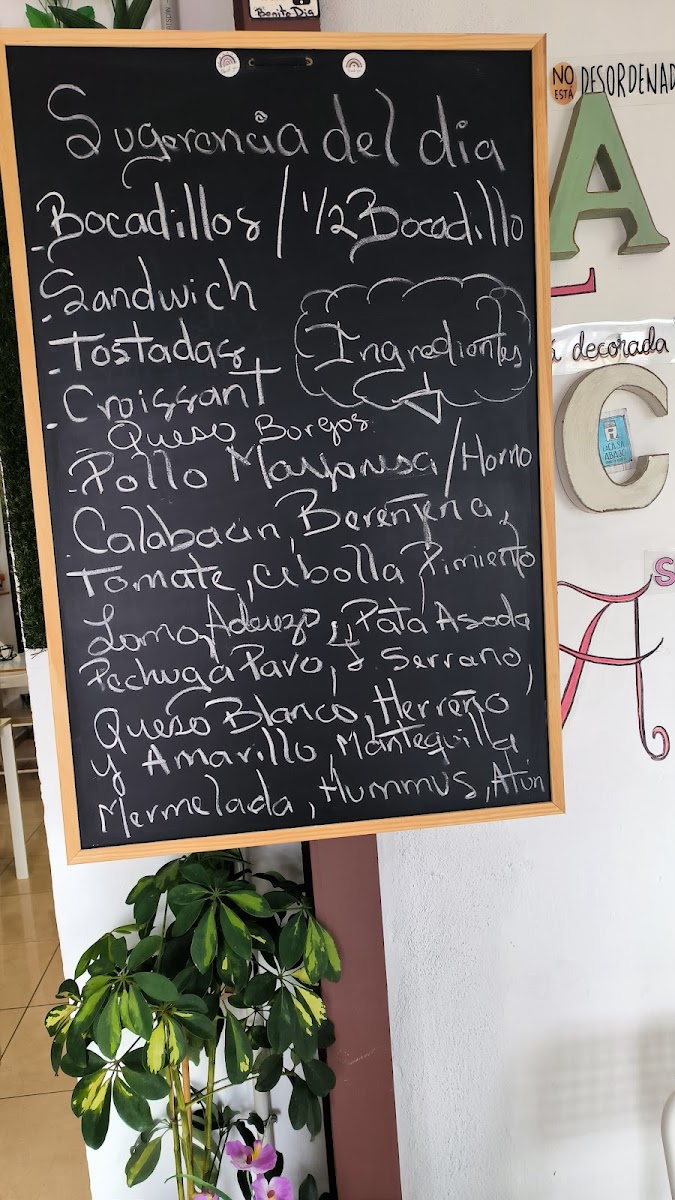 Bonito Dia
Sugerencia del dia
- Bocadillos / 1/2 Bocadillo
- Sandwich
- Tostadas
- Croissant
Ingredientes
- Queso Borgos
- Pollo Mayonesa / Horno
Calabacin, Berenjena,
Tomate, cebolla Pimiento
Lomo Aderezo, Pata Asada
Pechuga Pavo, J. Serrano,
Queso Blanco, Herreño
y Amarillo, Mantequilla
Mermelada, Hummus, Atún
NO ESTÁ DESORDENAD
A
L
á decorada
C
LA CASA
ABAJO
S
A